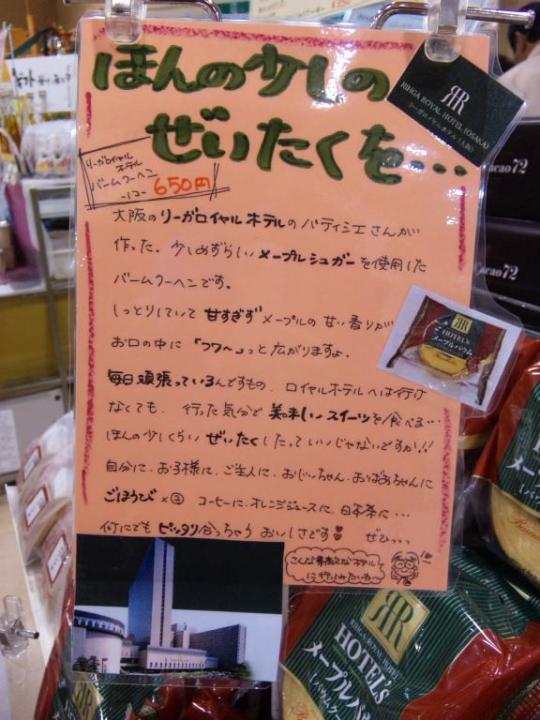 ほんの少しの
ぜいたくを…
RIHGA ROYAL HOTEL (OSAKA)
リーガロイヤルホテル(大阪)
リーガロイヤル
ホテル
バームクーヘン
-1コ- 650円
大阪のリーガロイヤルホテルのパティシエさんが
作った、少しめずらしいメープルシュガーを使用した
バームクーヘンです。
しっとりしていて甘すぎずメープルの甘い香りが
お口の中に「フワ〜」っと広がりますよ。
毎日頑張っているんですもの、ロイヤルホテルへは行け
なくても、行った気分で美味しいスイーツを食べる…
ほんの少しくらいぜいたくしたっていいじゃないですか!!
自分に、お子様に、ご主人に、おじいちゃん、おばあちゃんに
ごほうび×③ コーヒーに、オレンジジュースに、日本茶に…
何にでもピッタリ合っちゃうおいしさです♥ ぜひ…
こんな素敵なホテル
HOTELS
メープルバウム
cacao 72
cacao 72
RIHGA ROYAL HOTELS
HOTELS
メープルバウム
メープル